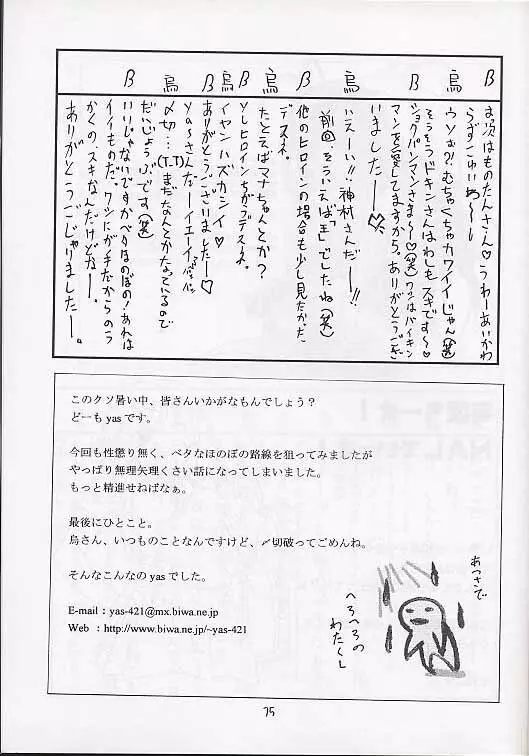 β
お次はものたんさん♡うわーあいかわ
らずすごいわぁ〜〜し
烏
ウソぉ?!むちゃくちゃカワイイじゃん(笑)
そうそうドキンさんはわしもスキです〜♡
ショクパンマンさま〜♡(笑)ワシはバイキン
マンを愛してますから。ありがとうござ
いました――♡
烏
いえーい!!神村さんだー!!
前回、そういえば「王」でしたね(笑)
β
他のヒロインの場合も少し見たかった
デスネ。
烏
たとえばマナちゃんとか?
β
ソレヒロインちがうデスネ。
烏
イヤンハズカシイ♡
β
ありがとうございました―♡
烏
yaーsさんだーイエーイ。パパパン
〆切…(T.T)まだなんとかなっているので
だいじょうぶです(笑)
β
いいじゃないですかベタなほのぼの!あれは
イイものだ。ワシにがチだからのう
かくの、スキなんだけどなー。
ありがとうごじゃりました―。
このクソ暑い中、皆さんいかがなもんでしょう?
どーも yas です。
今回も性懲り無く、ベタなほのぼの路線を狙ってみましたが
やっぱり無理矢理くさい話になってしまいました。
もっと精進せねばなぁ。
最後にひとこと。
烏さん、いつものことなんですけど、〆切破ってごめんね。
そんなこんなの yas でした。
E-mail : yas-421@mx.biwa.ne.jp
Web : http://www.biwa.ne.jp/~yas-421
あつさで
へろへろの
わたくし
25